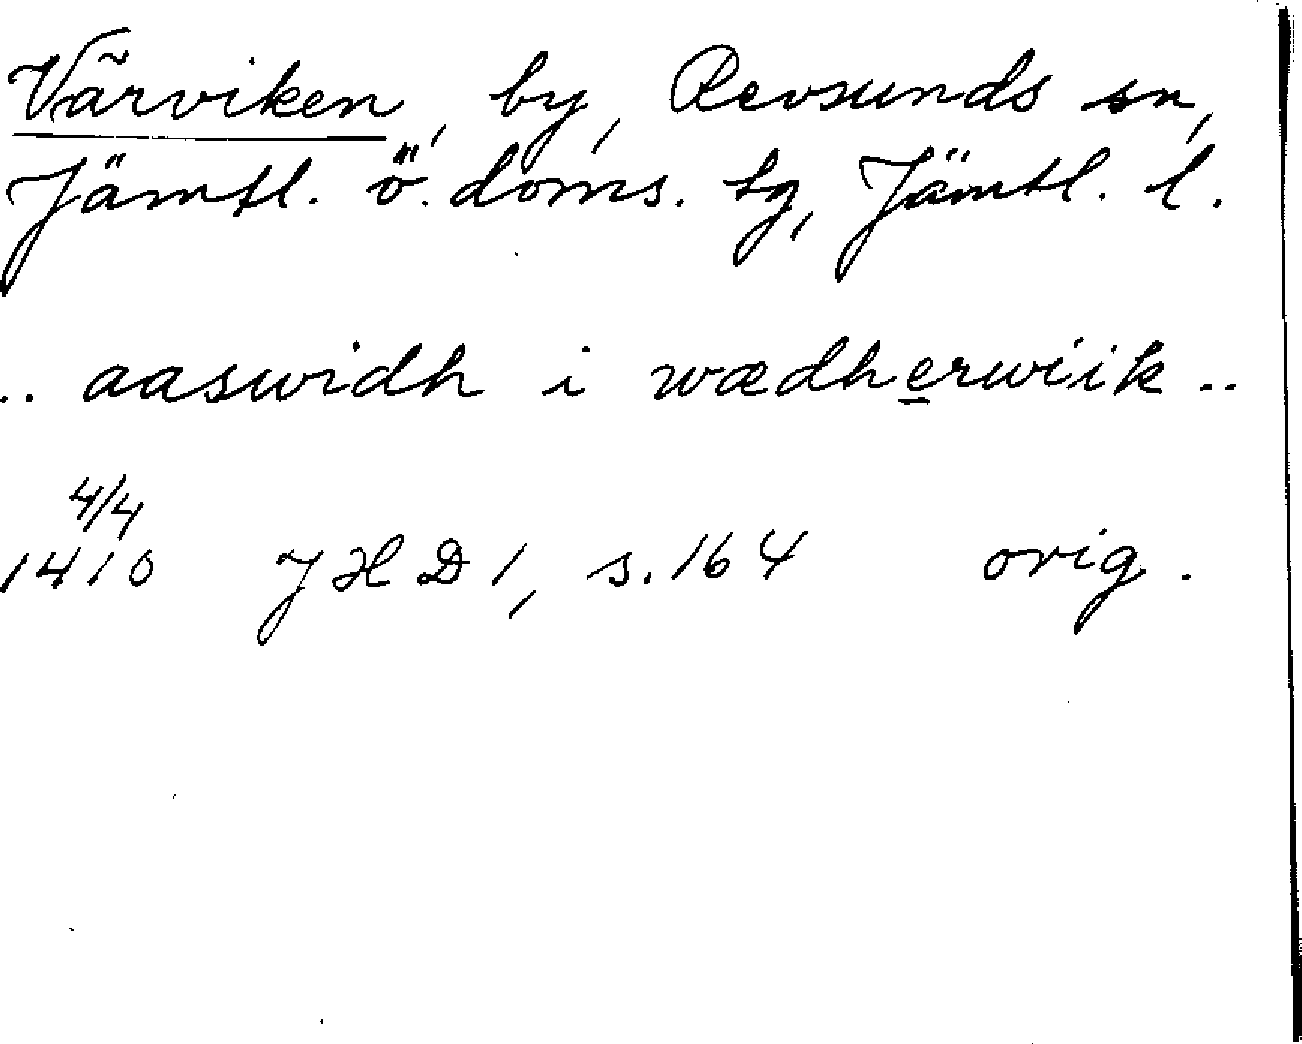 Värviken, by, Revsunds sn,
Jämtl. ö. doms. tg, Jämtl. l.
.. aaswidh i wædherwiik ..
4/4
1410 JHD 1, s. 164 orig.